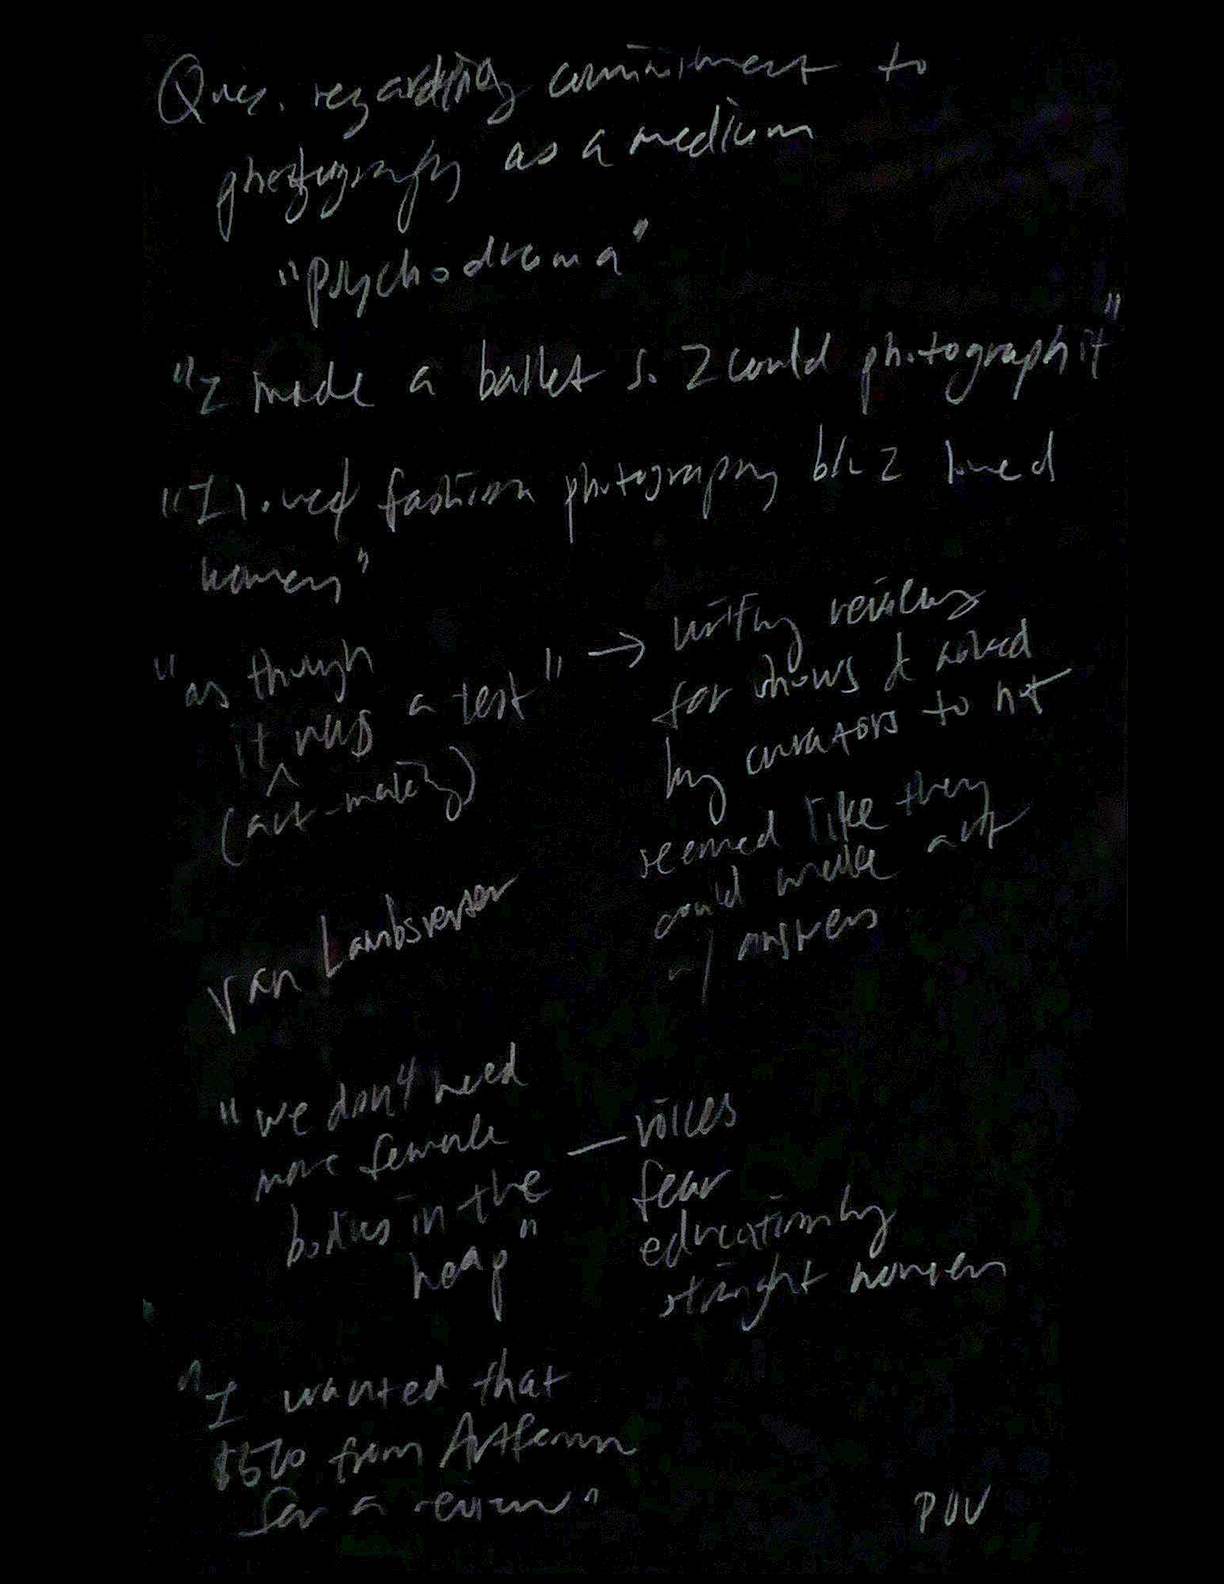 Ques. regarding commitment to
photography as a medium
"psychodrama"
"I made a ballet so I could photograph it"
"I loved fashion photography b/c I loved
women"
"as though
it was a test"
^
(art-making)
→ writing reviews
for shows & asked
by curators to not
seemed like they
could make art
w/ answers
Van Lambsweerde
"we don't need
more female
bodies in the
heap"
— voices
fear
education by
straight women
"I wanted that
from Artforum
for a review"
POV